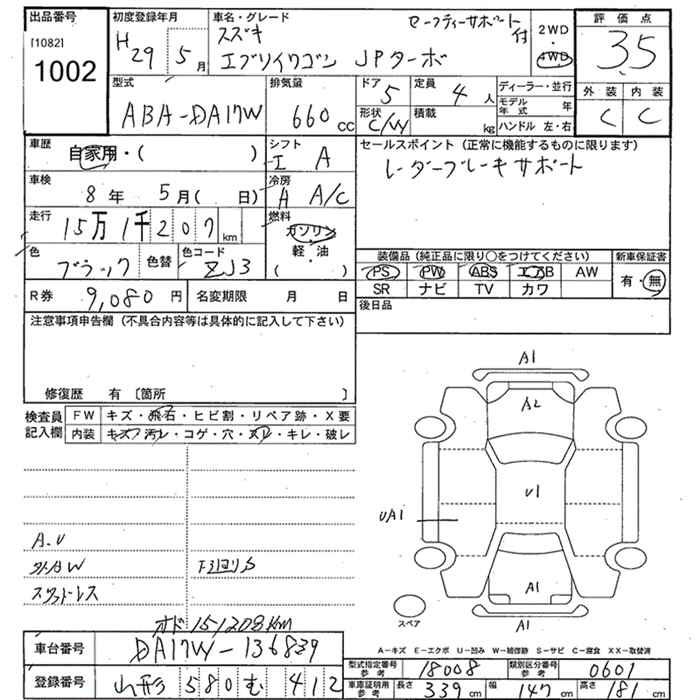 出品番号
[1082]
1002
初度登録年月
H29 5月
車名・グレード
セーフティーサポート付
スズキ
エブリイワゴン JPターボ
2WD
・
4WD
評価点
3.5
外装 内装
C C
型式
ABA-DA17W
排気量
660 CC
ドア 5
定員 4人
形状 C/W
積載 kg
ディーラー・並行
モデル年式 年
ハンドル 左・右
車歴
自家用・( )
シフト
I A
車検
8年 5月( 日)
冷房
A A/C
走行
15万1千207km
燃料
ガソリン
軽・油
( )
色
ブラック
色替
色コード
ZJ3
R券 9,080円
名変期限 月 日
セールスポイント(正常に機能するものに限ります)
レーダーブレーキサポート
装備品(純正品に限り○をつけてください)
PS PW ABS エアB AW
SR ナビ TV カワ
新車保証書
有・無
後日品
注意事項申告欄(不具合内容等は具体的に記入して下さい)
修復歴 有〔箇所 〕
検査員記入欄
FW キズ・飛石・ヒビ割・リペア跡・X要
内装 キズ・汚レ・コゲ・穴・スレ・キレ・破レ
A.U
外AW
スタッドレス
下回りS
オド151208km
A1
A2
U1
UA1
A1
A1
スペア
A-キズ E-エクボ U-凹み W-補修跡 S-サビ C-腐食 XX-取替済
車台番号 DA17W-136839
登録番号 山形 580 む 412
型式指定番号 参考 18008
類別区分番号 参考 0601
車庫証明用 参考 長さ 339cm 幅 147cm 高さ 181cm